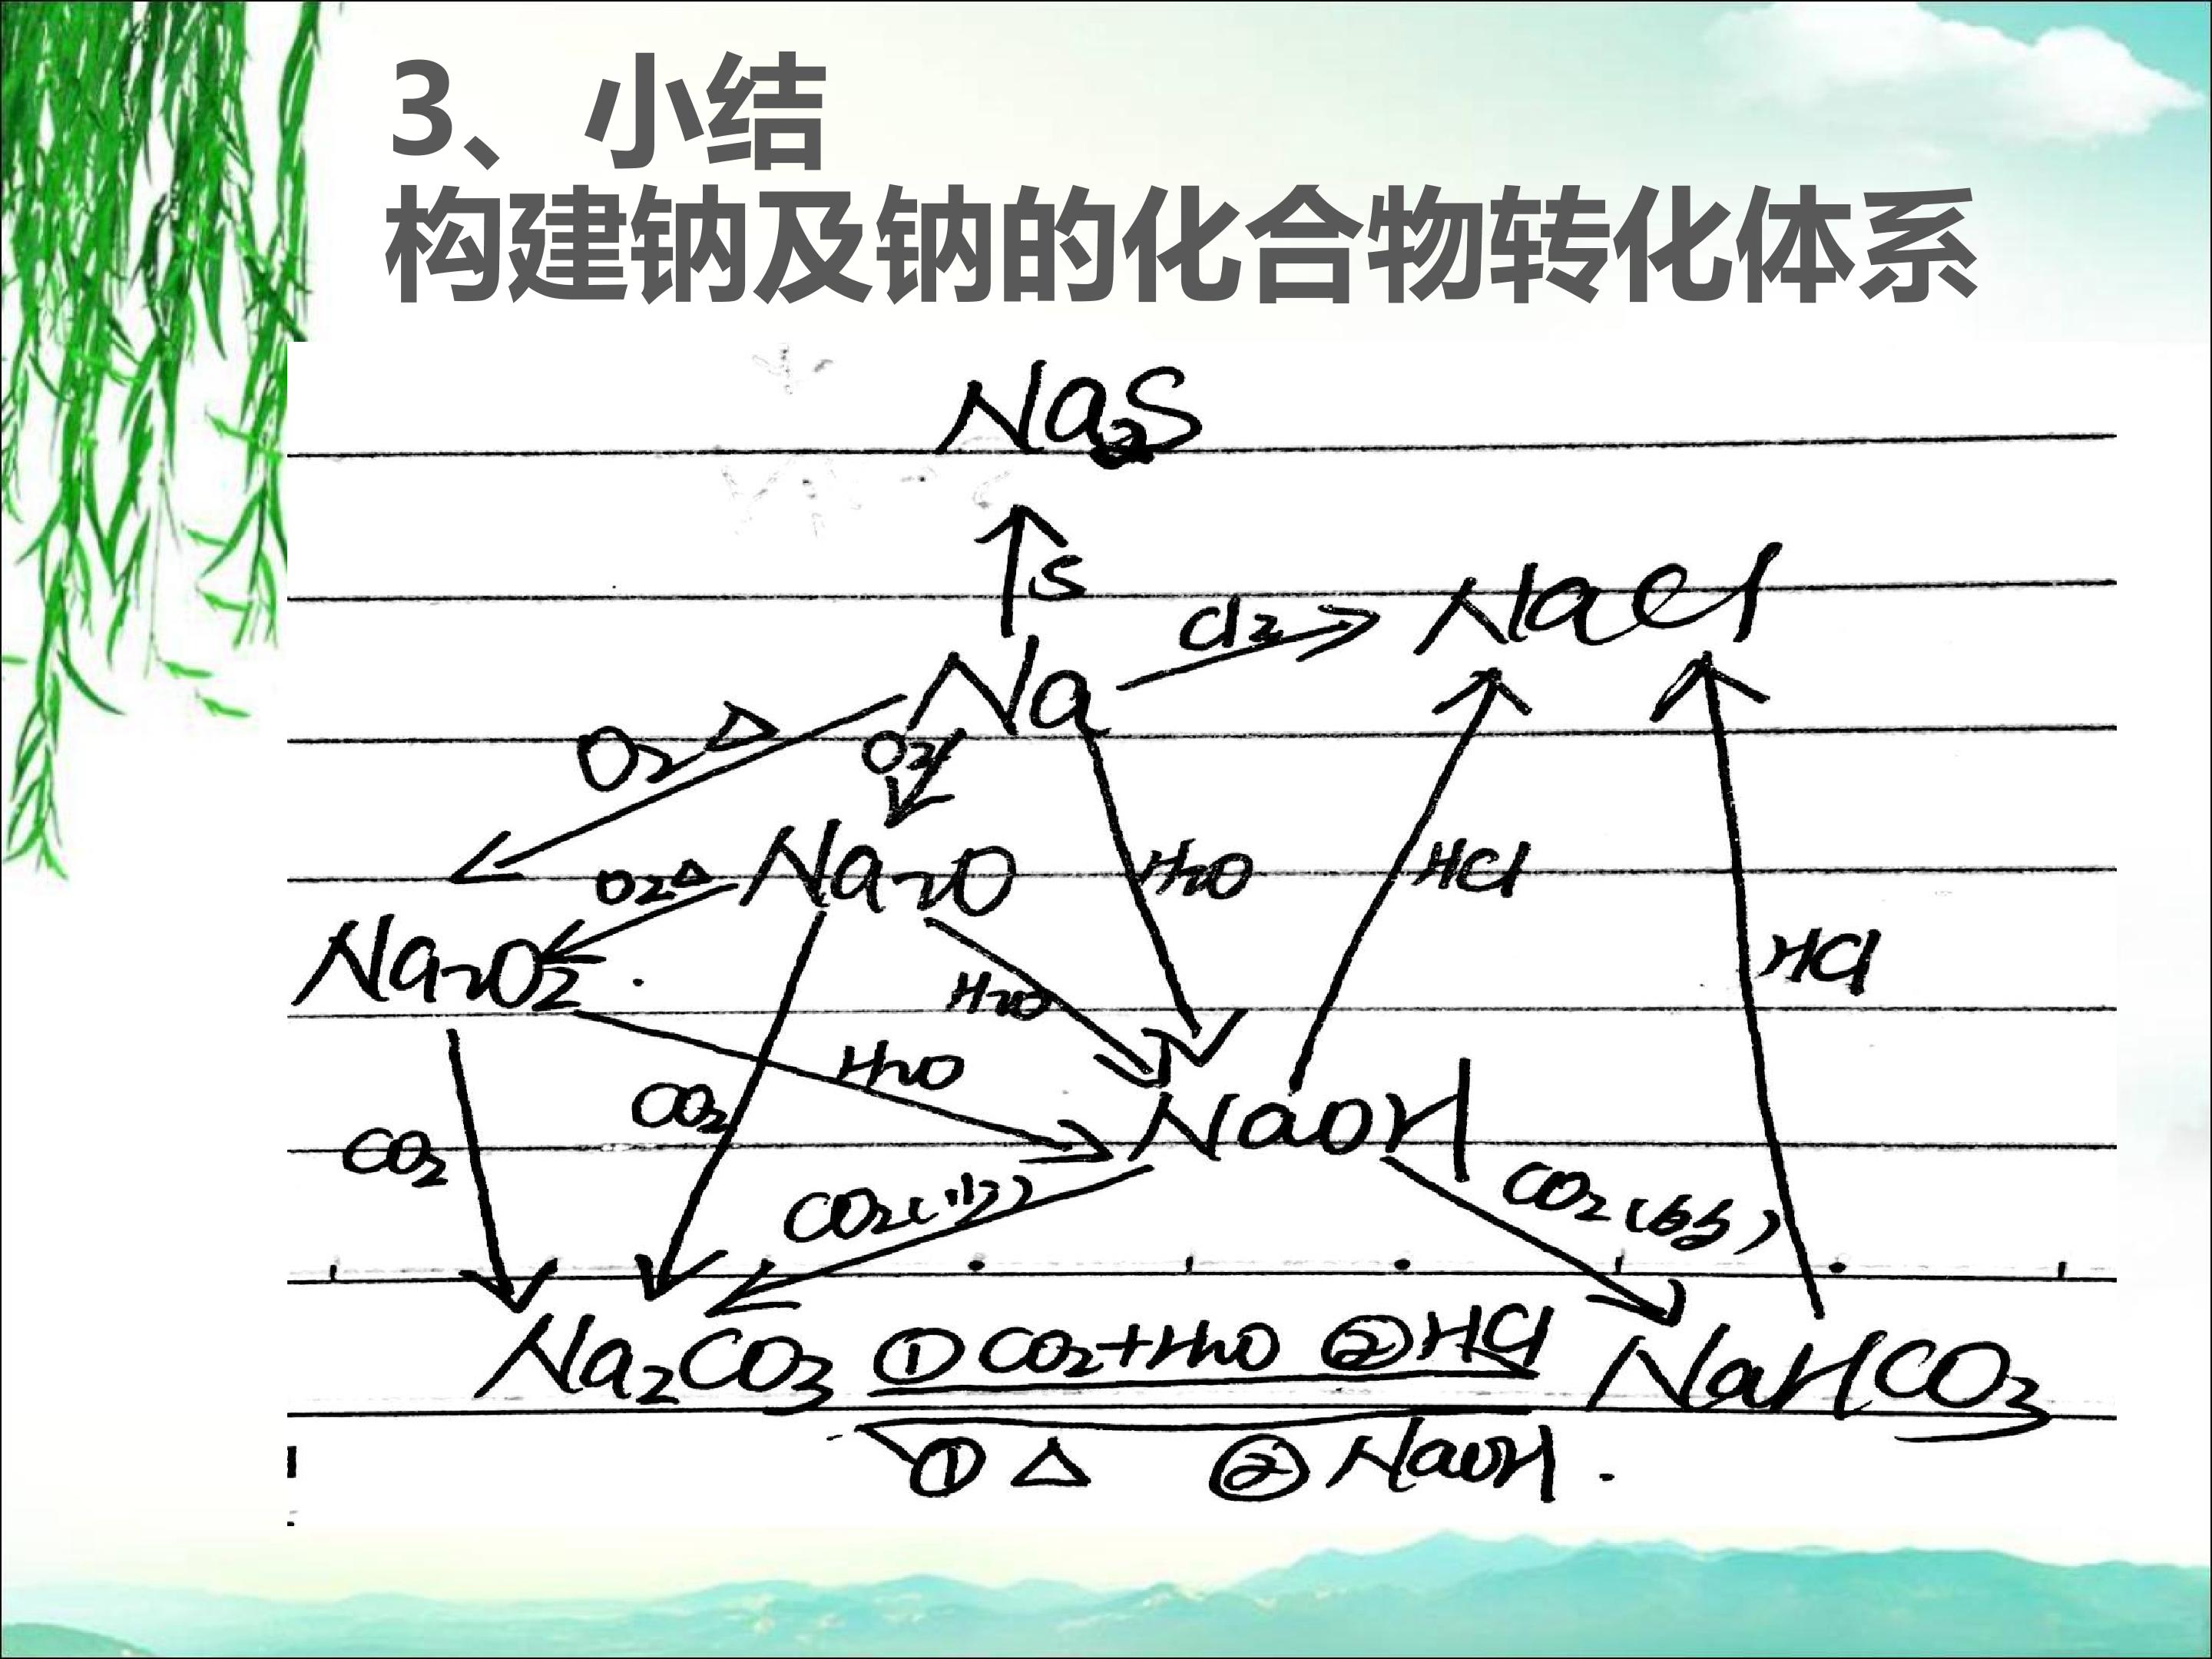 3、 小结
构建钠及钠的化合物转化体系
Na2S
S
Cl2 NaCl
Na
O2 △ O2
O2 △ Na2O H2O HCl
Na2O2 H2O HCl
H2O
CO2 CO2 NaOH
CO2(少) CO2(
Na2CO3 ①CO2+H2O ②HCl NaHCO3
①△ ②NaOH.